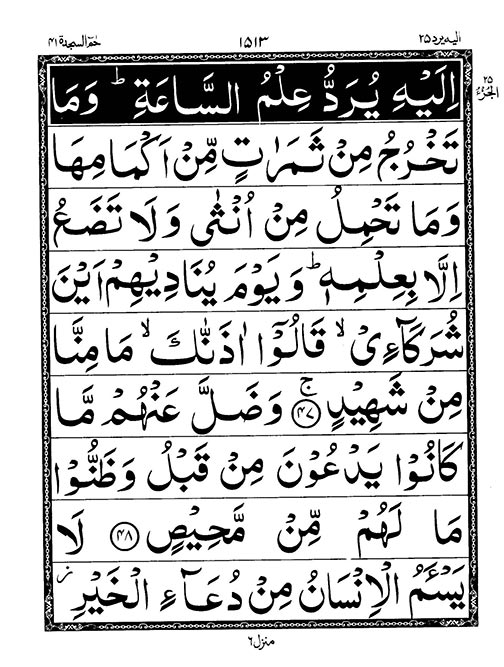 الیه یرد ۲۵ ۱۵۱۳ حٰمٓ السجدة ۴۱
۲۵
الجزء
اِلَيْهِ يُرَدُّ عِلْمُ السَّاعَةِ ؕ وَمَا
تَخْرُجُ مِنْ ثَمَرٰتٍ مِّنْ اَكْمَامِهَا
وَمَا تَحْمِلُ مِنْ اُنْثٰى وَلَا تَضَعُ
اِلَّا بِعِلْمِهٖ ؕ وَيَوْمَ يُنَادِيْهِمْ اَيْنَ
شُرَكَآءِىْ ۙ قَالُوْٓا اٰذَنّٰكَ ۙ مَا مِنَّا
مِنْ شَهِيْدٍ ۚ ﴿۴۷﴾ وَضَلَّ عَنْهُمْ مَّا
كَانُوْا يَدْعُوْنَ مِنْ قَبْلُ وَظَنُّوْا
مَا لَهُمْ مِّنْ مَّحِيْصٍ ﴿۴۸﴾ لَا
يَسْـَٔمُ الْاِنْسَانُ مِنْ دُعَآءِ الْخَيْرِ ز
منزل ۶